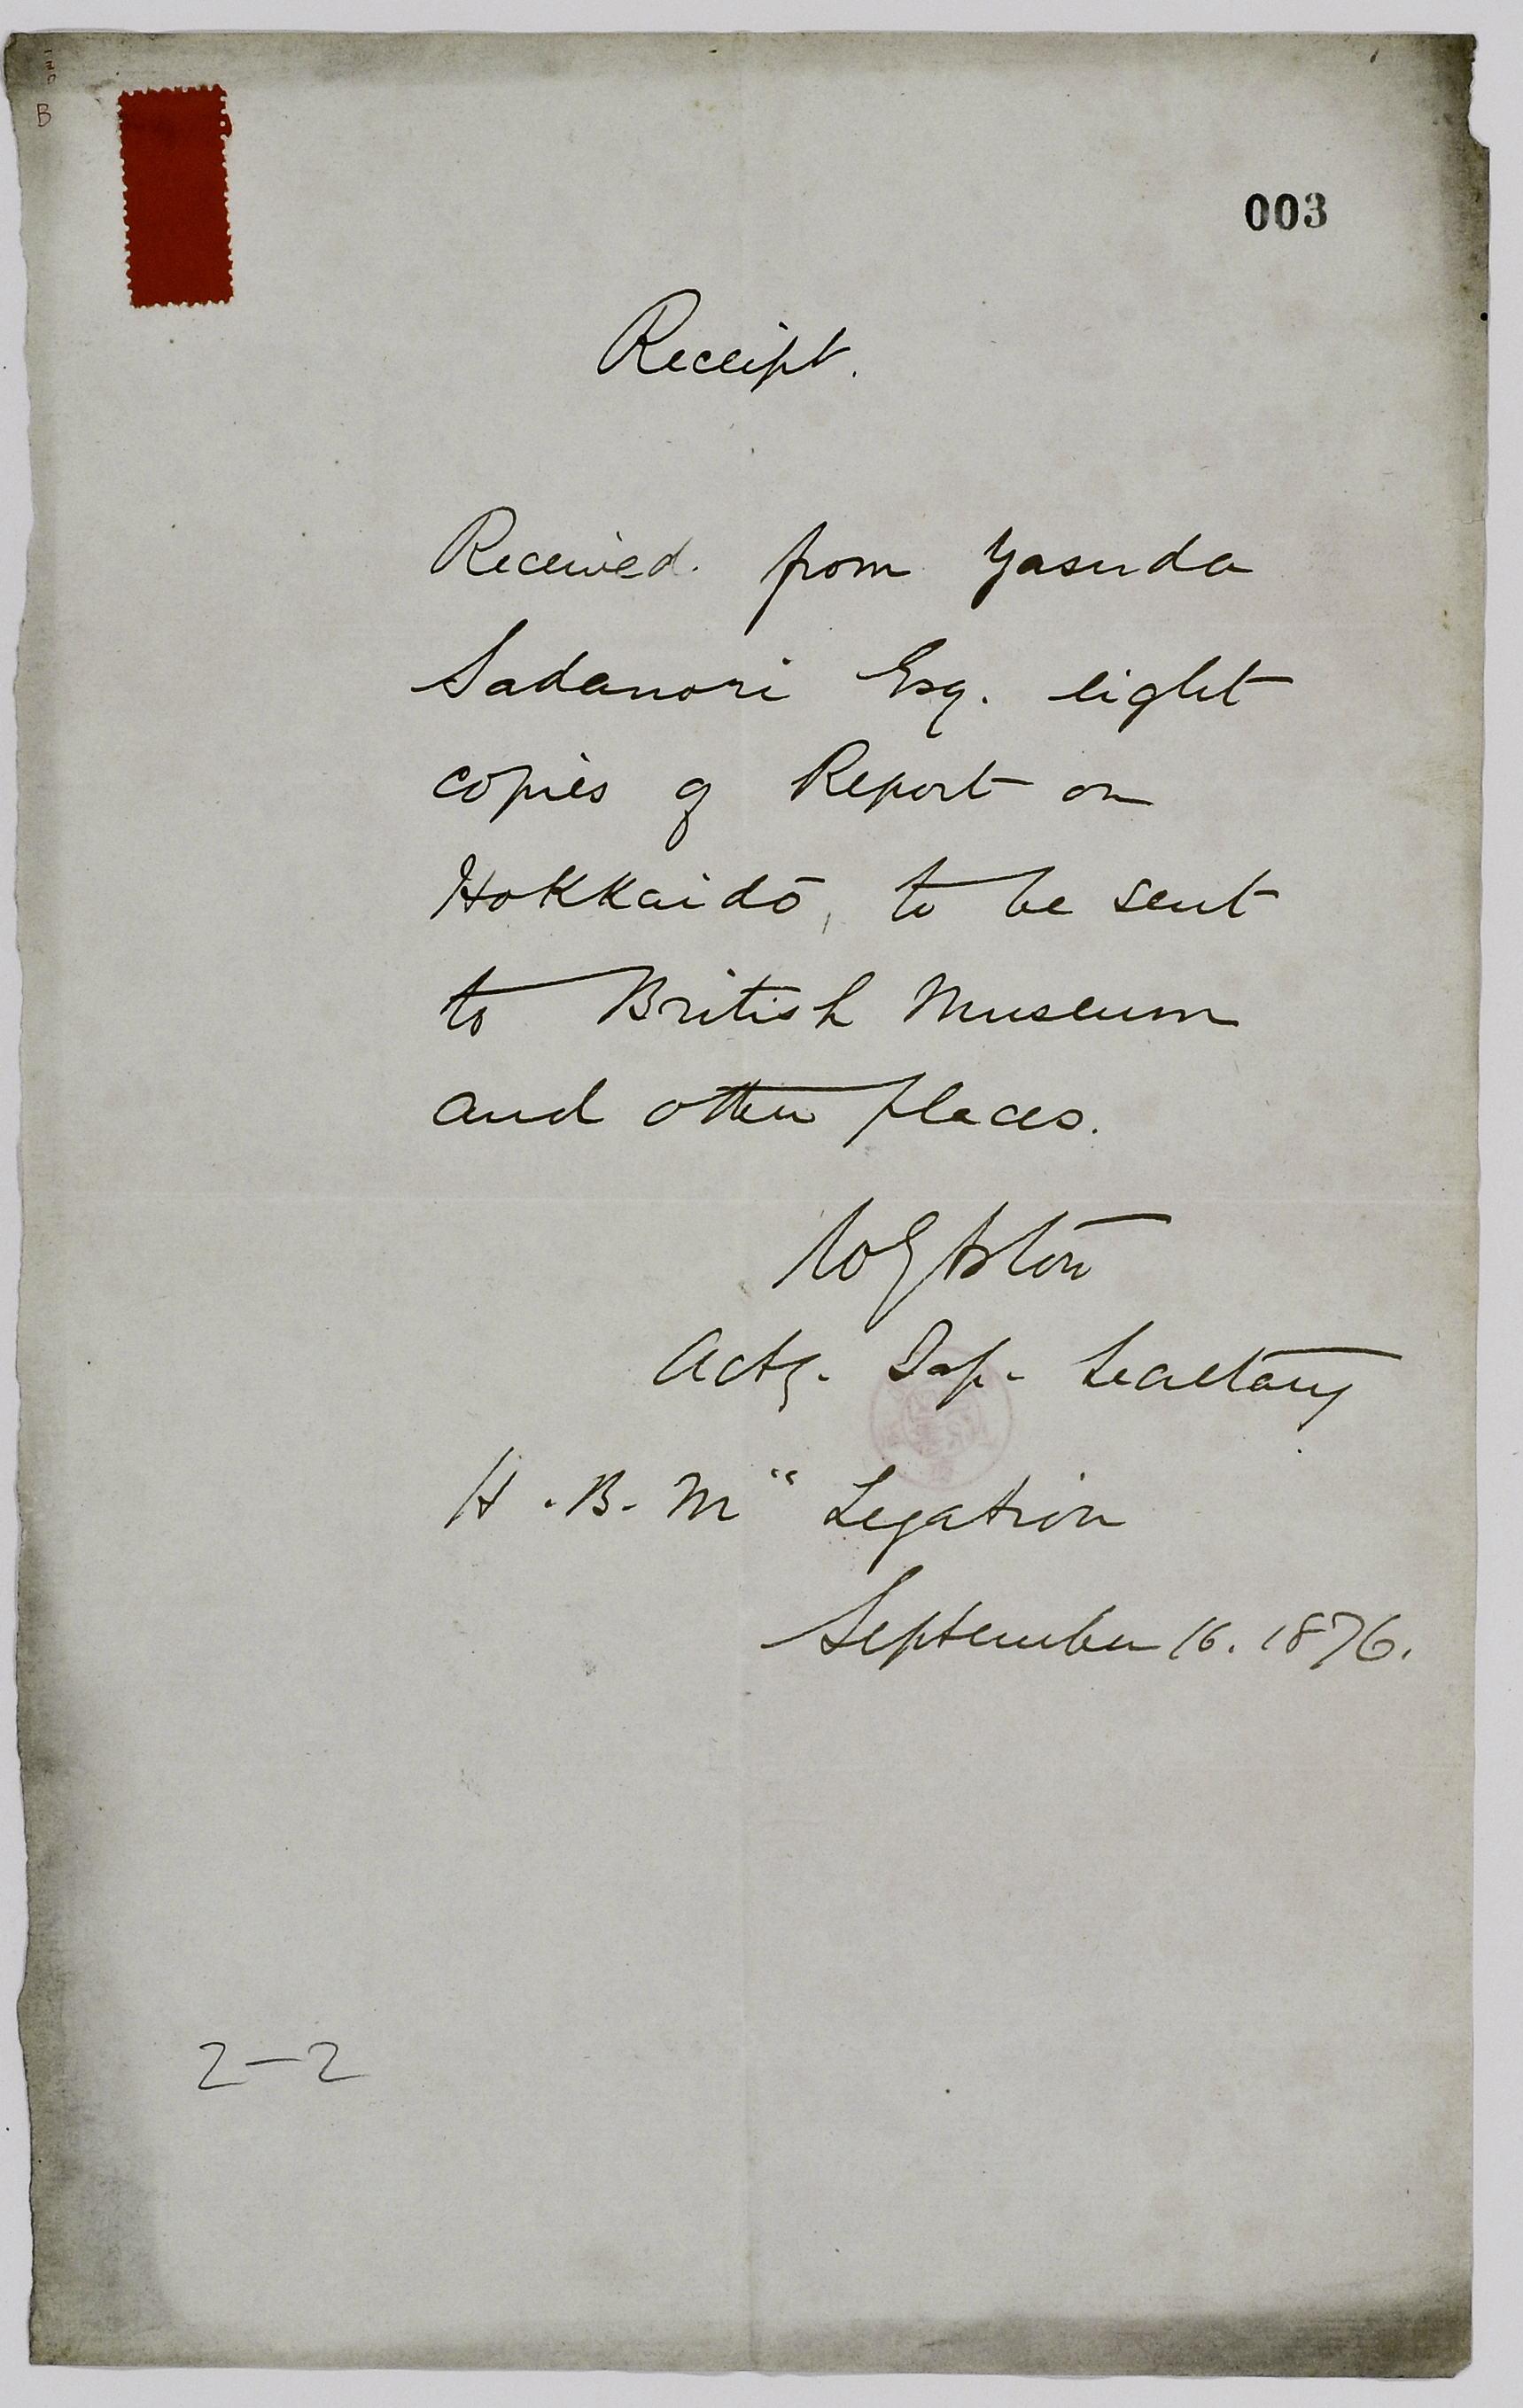 B
003
Receipt.
Received from Yasuda
Sadanori Esq. eight
copies of Report on
Hokkaidō, to be sent
to British Museum
and other places.
W G Aston
Actg. Jap. Secretary
H. B. M" Legation
September 16. 1876.
2-2